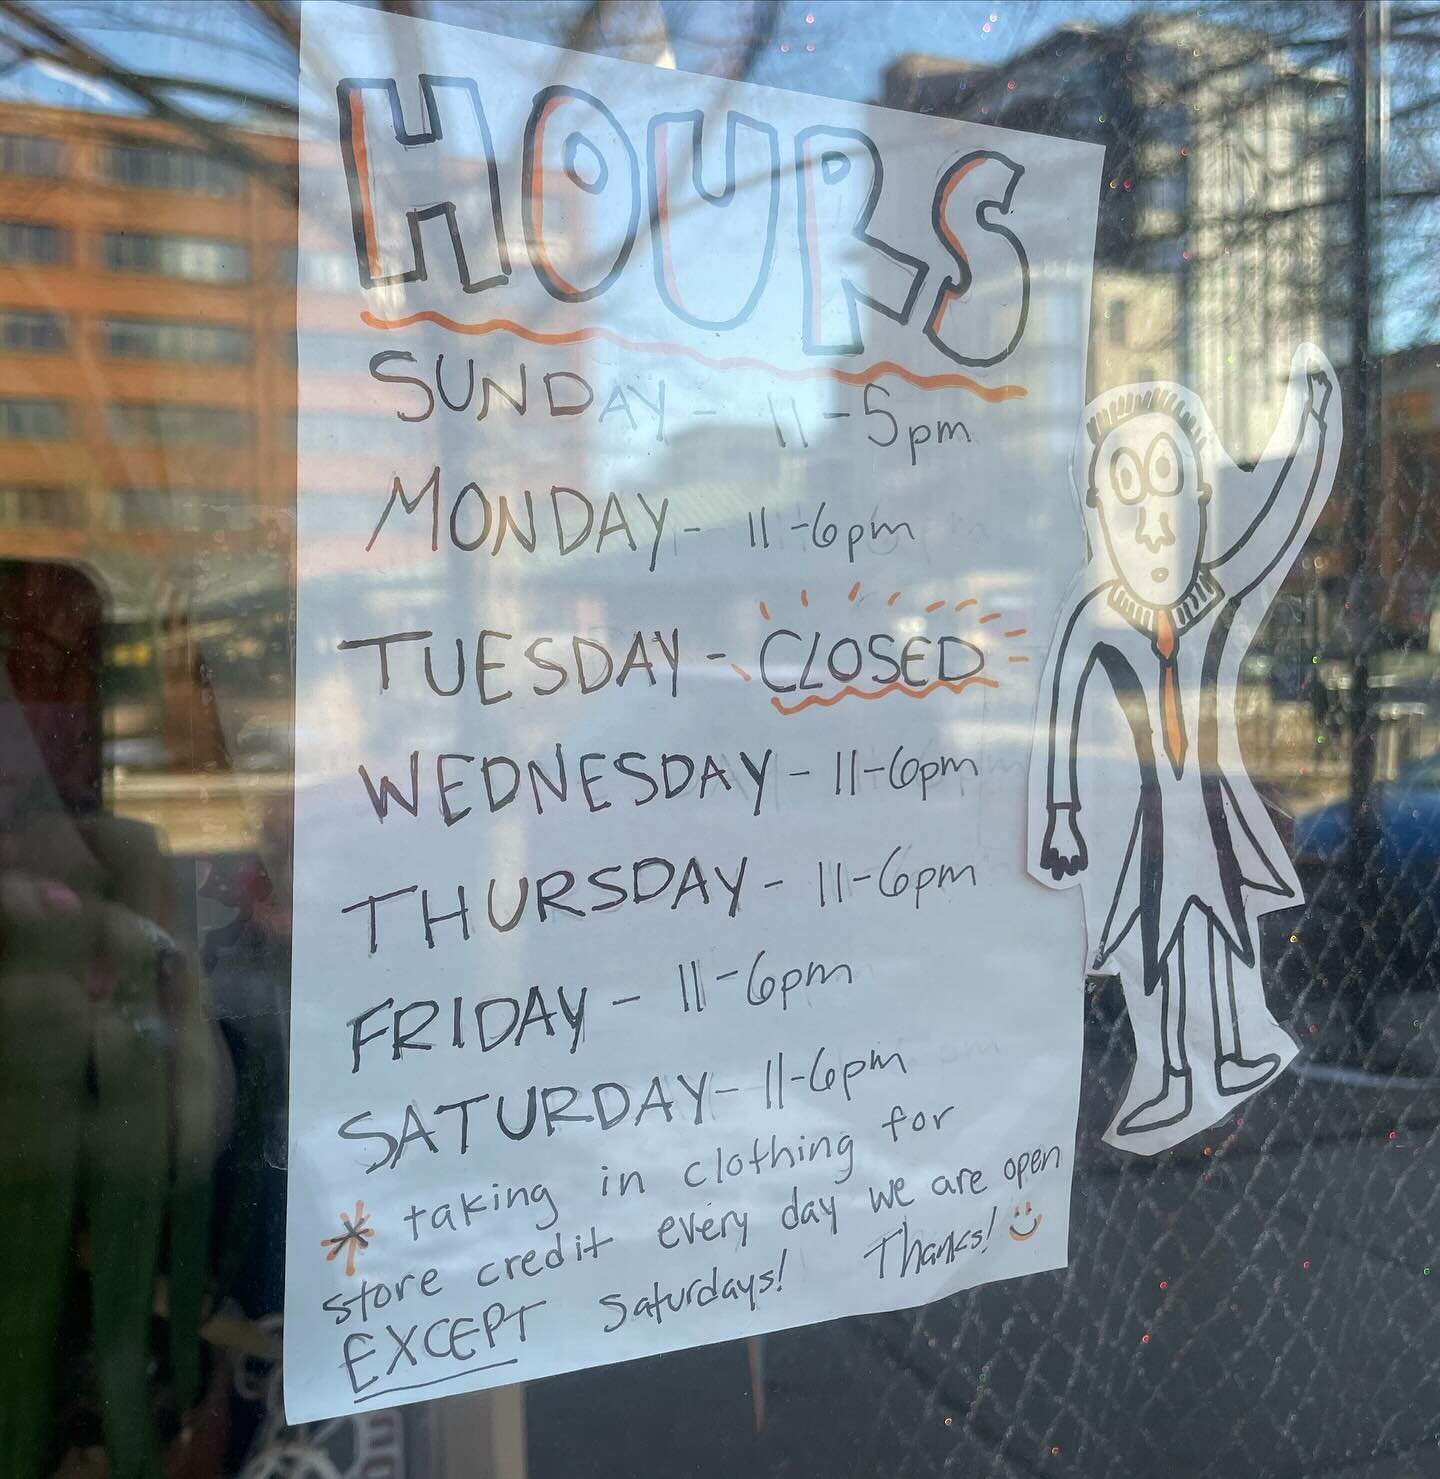 HOURS
SUNDAY - 11-5pm
MONDAY - 11-6pm
TUESDAY - CLOSED
WEDNESDAY - 11-6pm
THURSDAY - 11-6pm
FRIDAY - 11-6pm
SATURDAY - 11-6pm
* taking in clothing for
store credit every day we are open
EXCEPT Saturdays! Thanks!